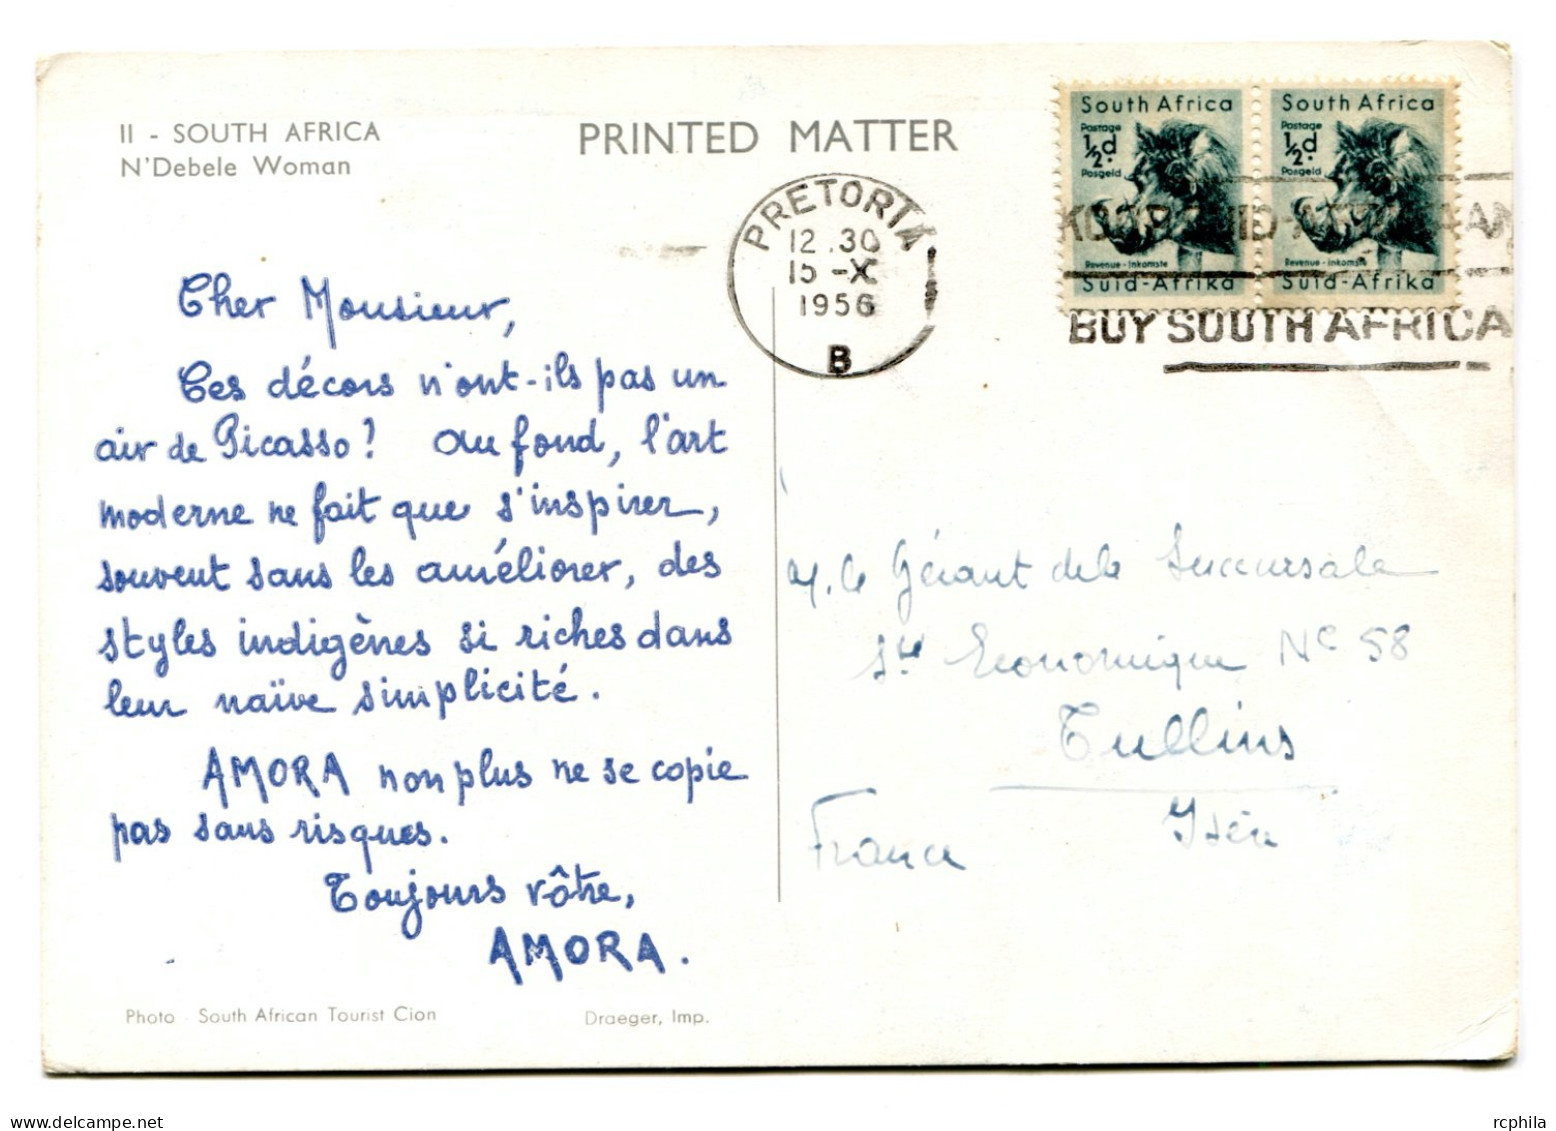 II - SOUTH AFRICA
N'Debele Woman
PRINTED MATTER
South Africa
Postage
½d.
Posgeld
Revenue - Inkomste
Suid-Afrika
South Africa
Postage
½d.
Posgeld
Revenue - Inkomste
Suid-Afrika
PRETORIA
12.30
15 -X
1956
B
BUY SOUTH AFRICA
Cher Monsieur,
Ces décors n'ont-ils pas un
air de Picasso? Au fond, l'art
moderne ne fait que s'inspirer,
souvent sans les améliorer, des
styles indigènes si riches dans
leur naïve simplicité.
AMORA non plus ne se copie
pas sans risques.
Toujours vôtre,
AMORA.
M. le Gérant de la Succursale
Sté Economique N° 58
Tullins
Isère
France
Photo - South African Tourist Cion
Draeger, Imp.
rcphila